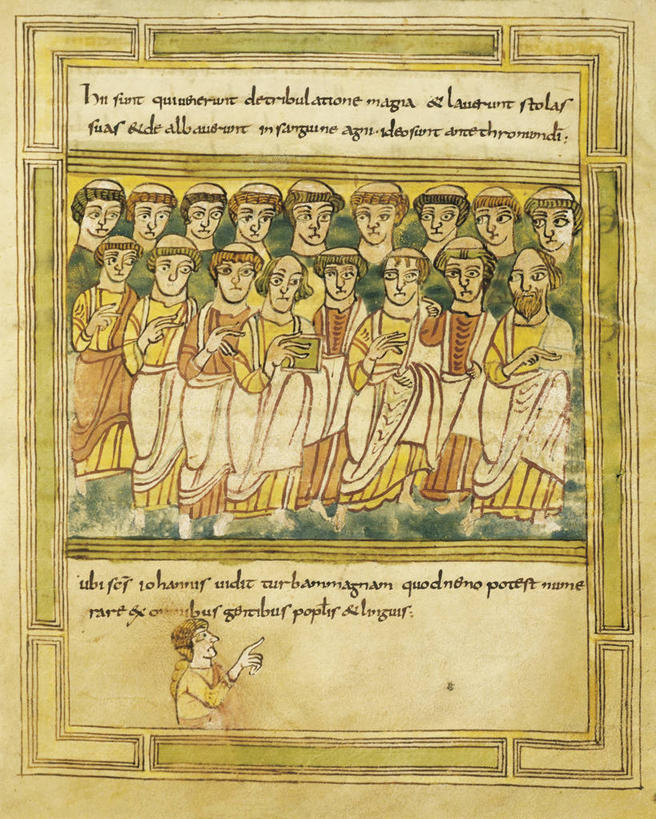 hii sunt quiuenerunt detribulatione magna & lauerunt stolas
suas &de albauerunt insanguine agni· ideosunt antethronumdi;
ubi scs iohannis uidit turbammagnam quodnemo potest nume
rare ex omnibus gentibus poplis &linguis;